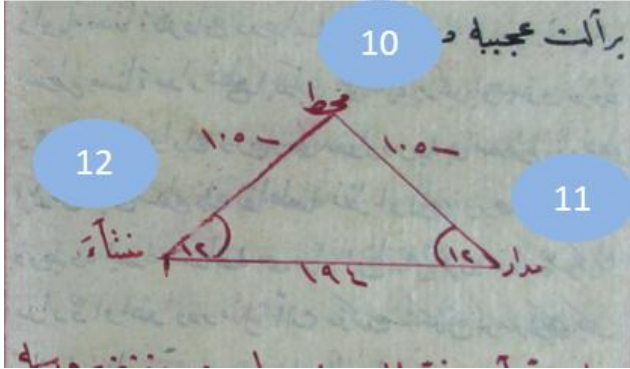 برآلت عجيبه د
10
محط
١٠٥– ١٠٥–
12
11
منشآءَ ١٢ ١٢ مدار
١٩٤